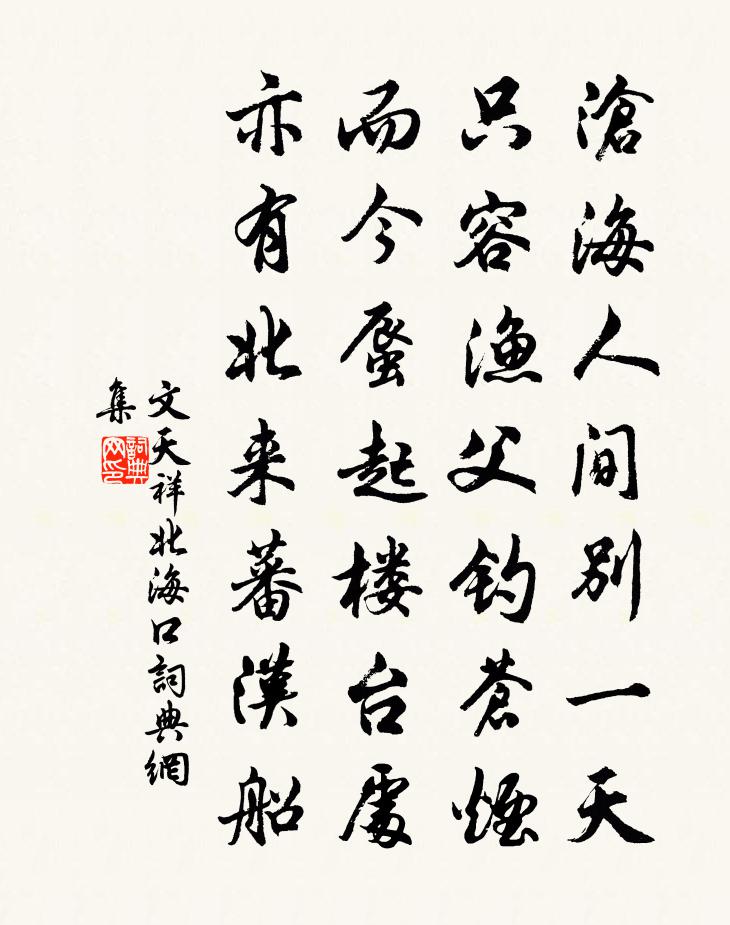 滄海人间别一天
只容漁父钓蒼煙
而今蜃起楼台處
亦有北来蕃漢船
文天祥北海口詞典網
集
詞典网印